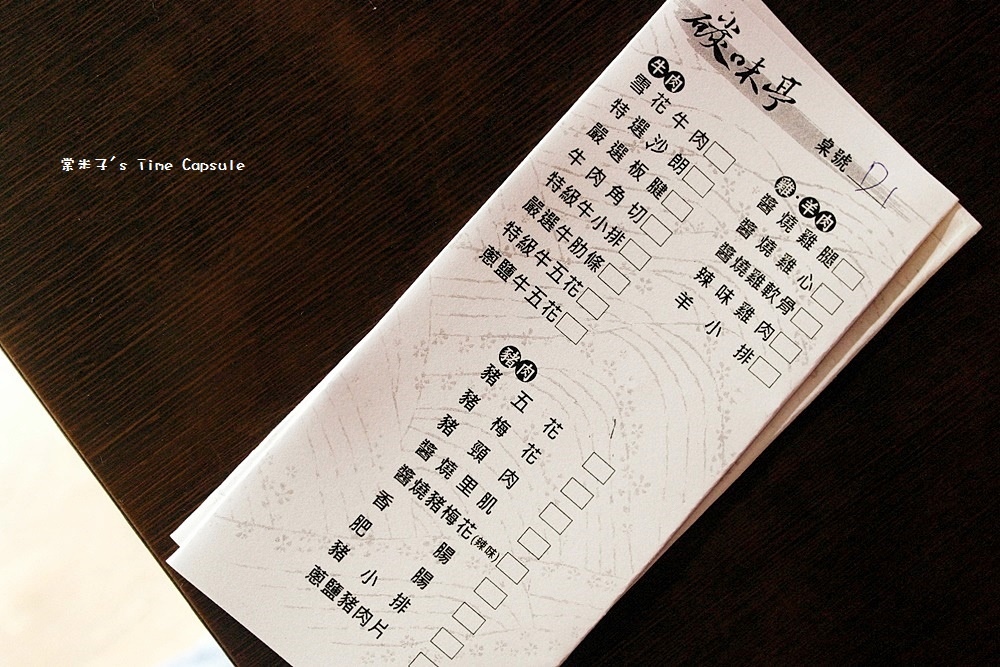 碳味亭
桌號 D1
牛肉
雪花牛肉
特選沙朗
嚴選板腱
牛肉角切
特級牛小排
嚴選牛肋條
特級牛五花
蔥鹽牛五花
雞·羊肉
醬燒雞腿
醬燒雞心
醬燒雞軟骨
辣味雞肉
羊小排
豬肉
豬五花
豬梅花
豬頸肉
醬燒里肌
醬燒豬梅花(辣味)
香腸
肥腸
豬小排
蔥鹽豬肉片
棠半子's Time Capsule